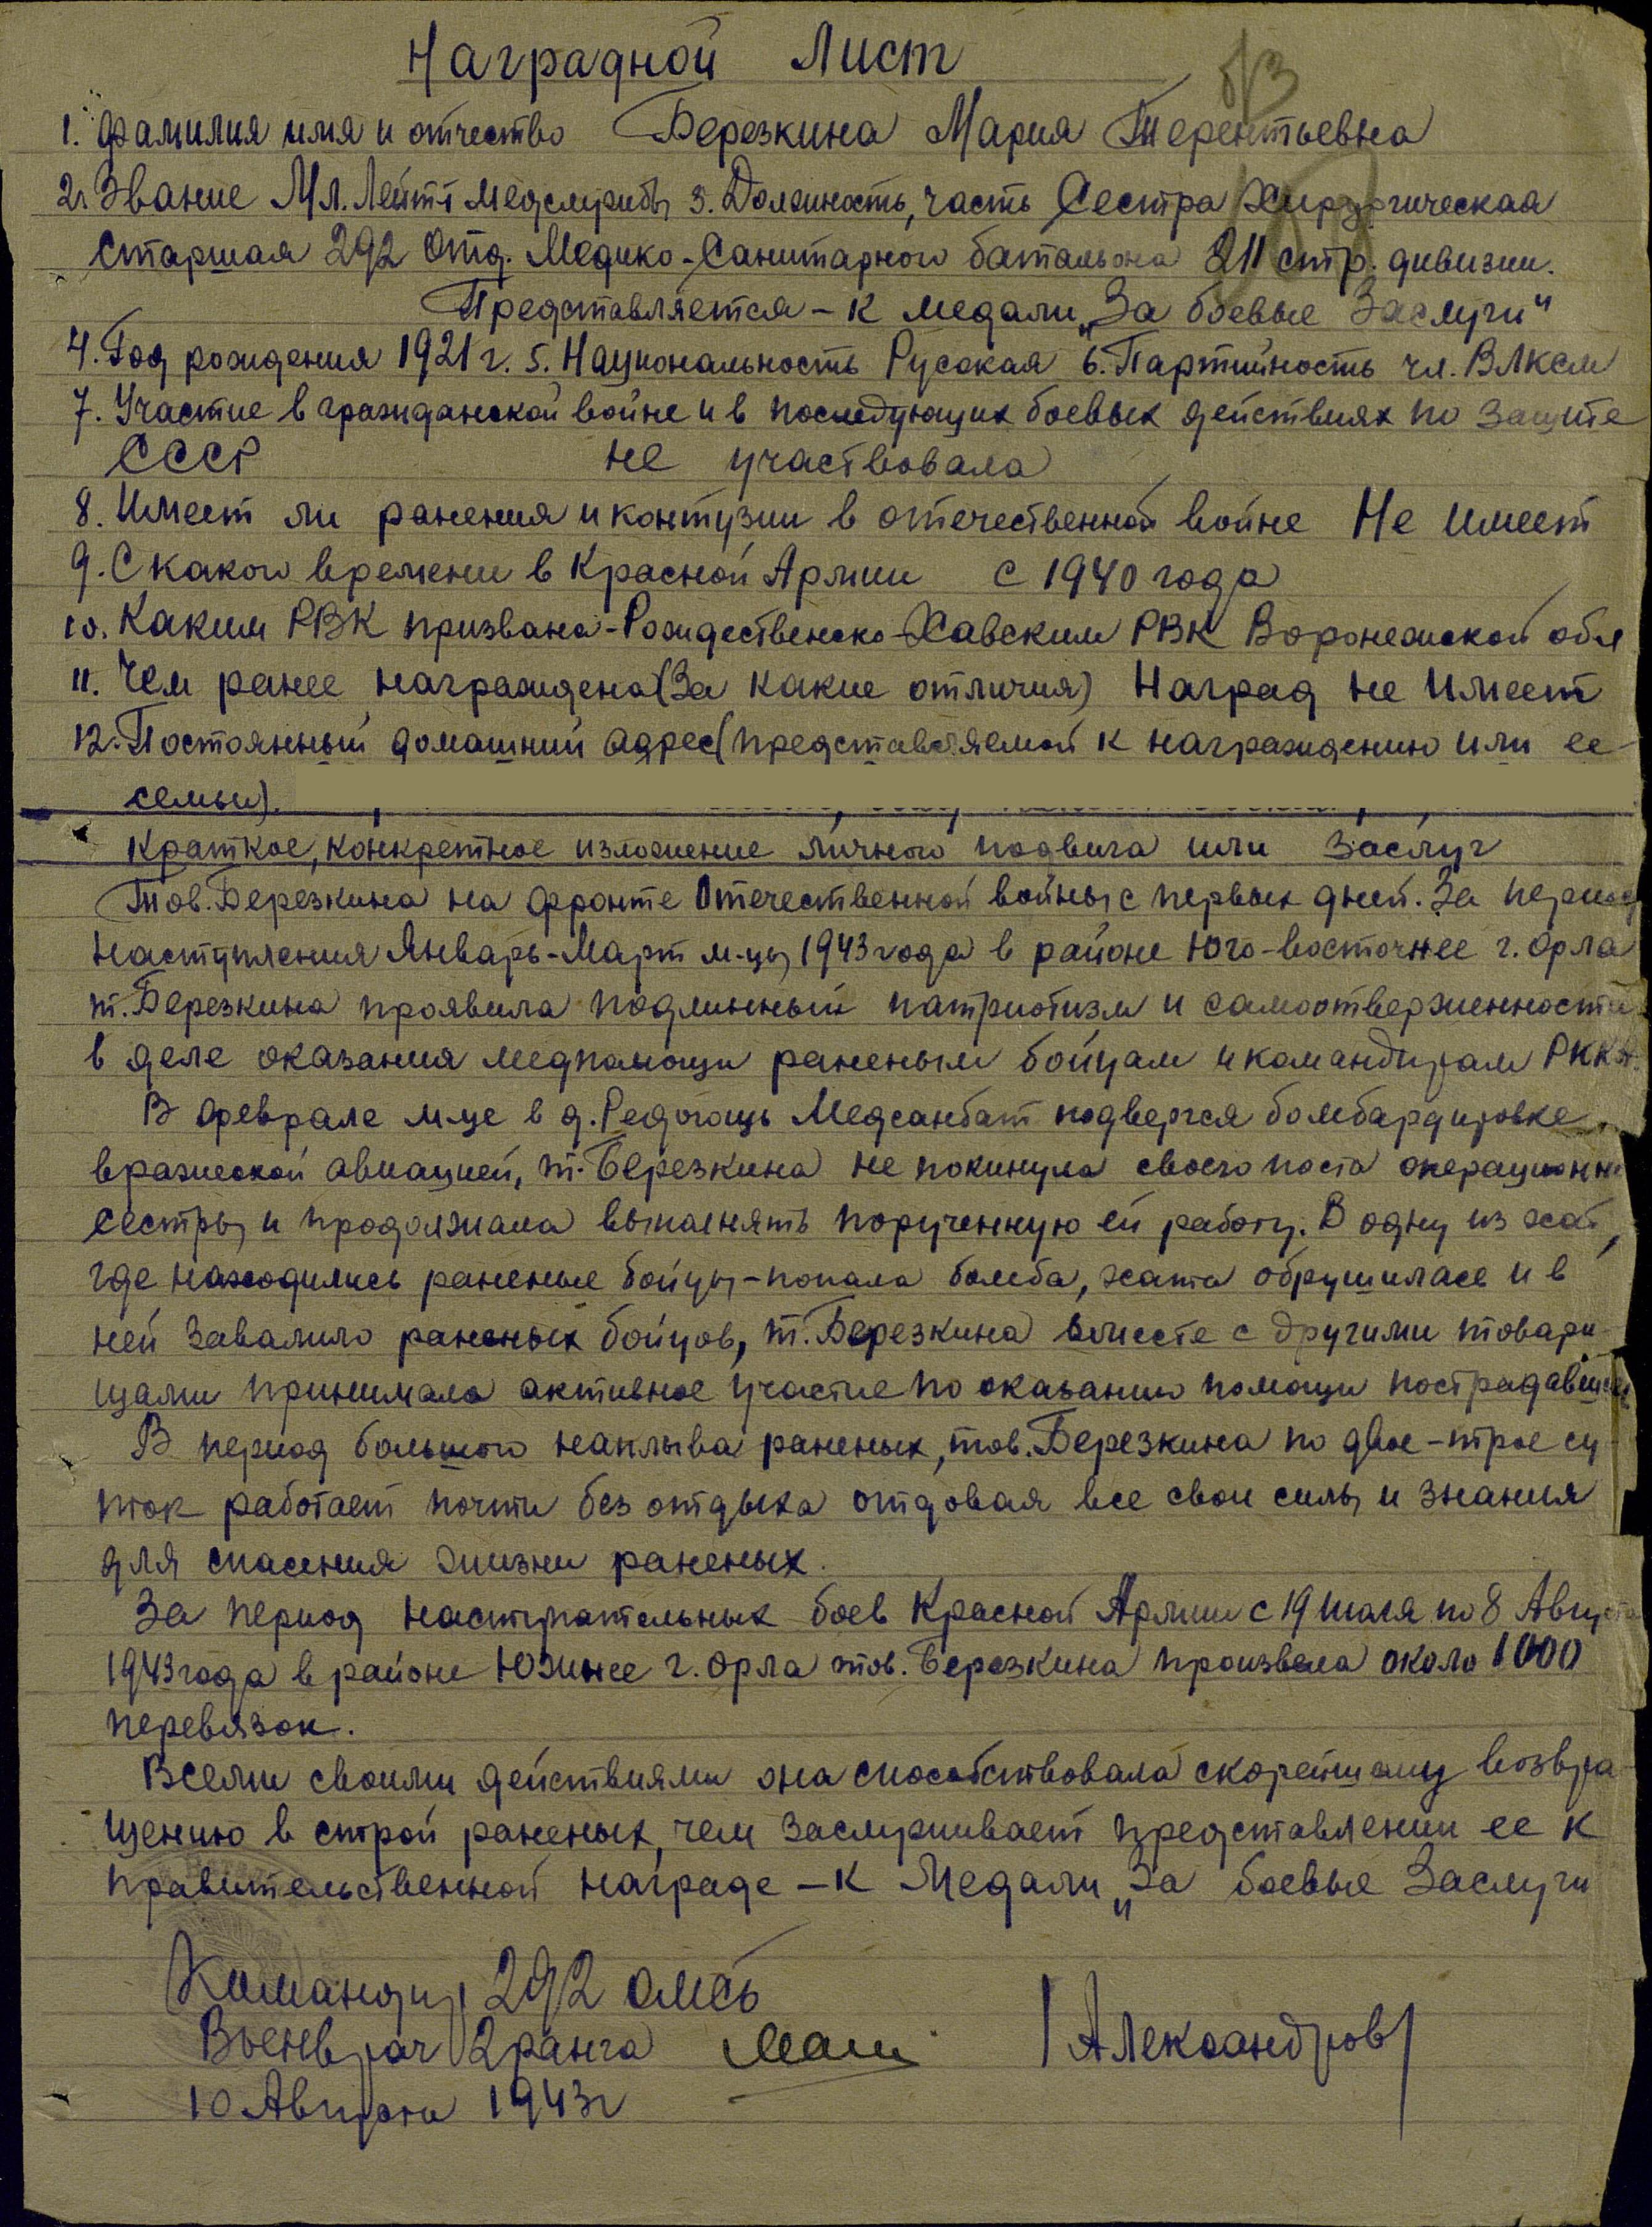 Наградной Лист
1. Фамилия имя и отчество Березкина Мария Терентьевна
2. Звание Мл. Лейт. медслужбы 3. Должность, часть Сестра Хирургическая
старшая 292 Отд. Медико-Санитарного батальона 211 стр. дивизии.
Представляется - к медали „За боевые Заслуги"
4. Год рождения 1921 г. 5. Национальность Русская 6. Партийность чл. ВЛКСМ
7. Участие в гражданской войне и в последующих боевых действиях по защите
СССР не участвовала
8. Имеет ли ранения и контузии в отечественной войне Не имеет
9. С какого времени в Красной Армии с 1940 года
10. Каким РВК призвана - Рождественско-Хавским РВК Воронежской обл
11. Чем ранее награждена (За какие отличия) Наград не имеет
12. Постоянный домашний адрес (представляемой к награждению или ее
семьи).
Краткое, конкретное изложение личного подвига или заслуг
Тов. Березкина на фронте Отечественной войны с первых дней. За период
наступления Январь-Март м-цы 1943 года в районе Юго-восточнее г. Орла
т. Березкина проявила подлинный патриотизм и самоотверженность
в деле оказания медпомощи раненым бойцам и командирам РККА.
В феврале м-це в д. Редогощь Медсанбат подвергся бомбардировке
вражеской авиацией, т. Березкина не покинула своего поста операционн
сестры и продолжала выполнять порученную ей работу. В одну из хат,
где находились раненые бойцы - попала бомба, хата обрушилась и в
ней завалило раненых бойцов, т. Березкина вместе с другими товари-
щами принимала активное участие по оказанию помощи пострадавшим
В период большого наплыва раненых, тов. Березкина по двое-трое су-
ток работает почти без отдыха отдовая все свои силы и знания
для спасения жизни раненых.
За период наступательных боев Красной Армии с 19 июля по 8 Августа
1943 года в районе Южнее г. Орла тов. Березкина произвела около 1000
перевязок.
Всеми своими действиями она способствовала скорейшему возвра-
щению в строй раненых, чем заслуживает представлении ее к
правительственной награде - к Медали „За боевые Заслуги
Командир 292 омсб
Военврач 2 ранга /Александров/
10 Августа 1943 г